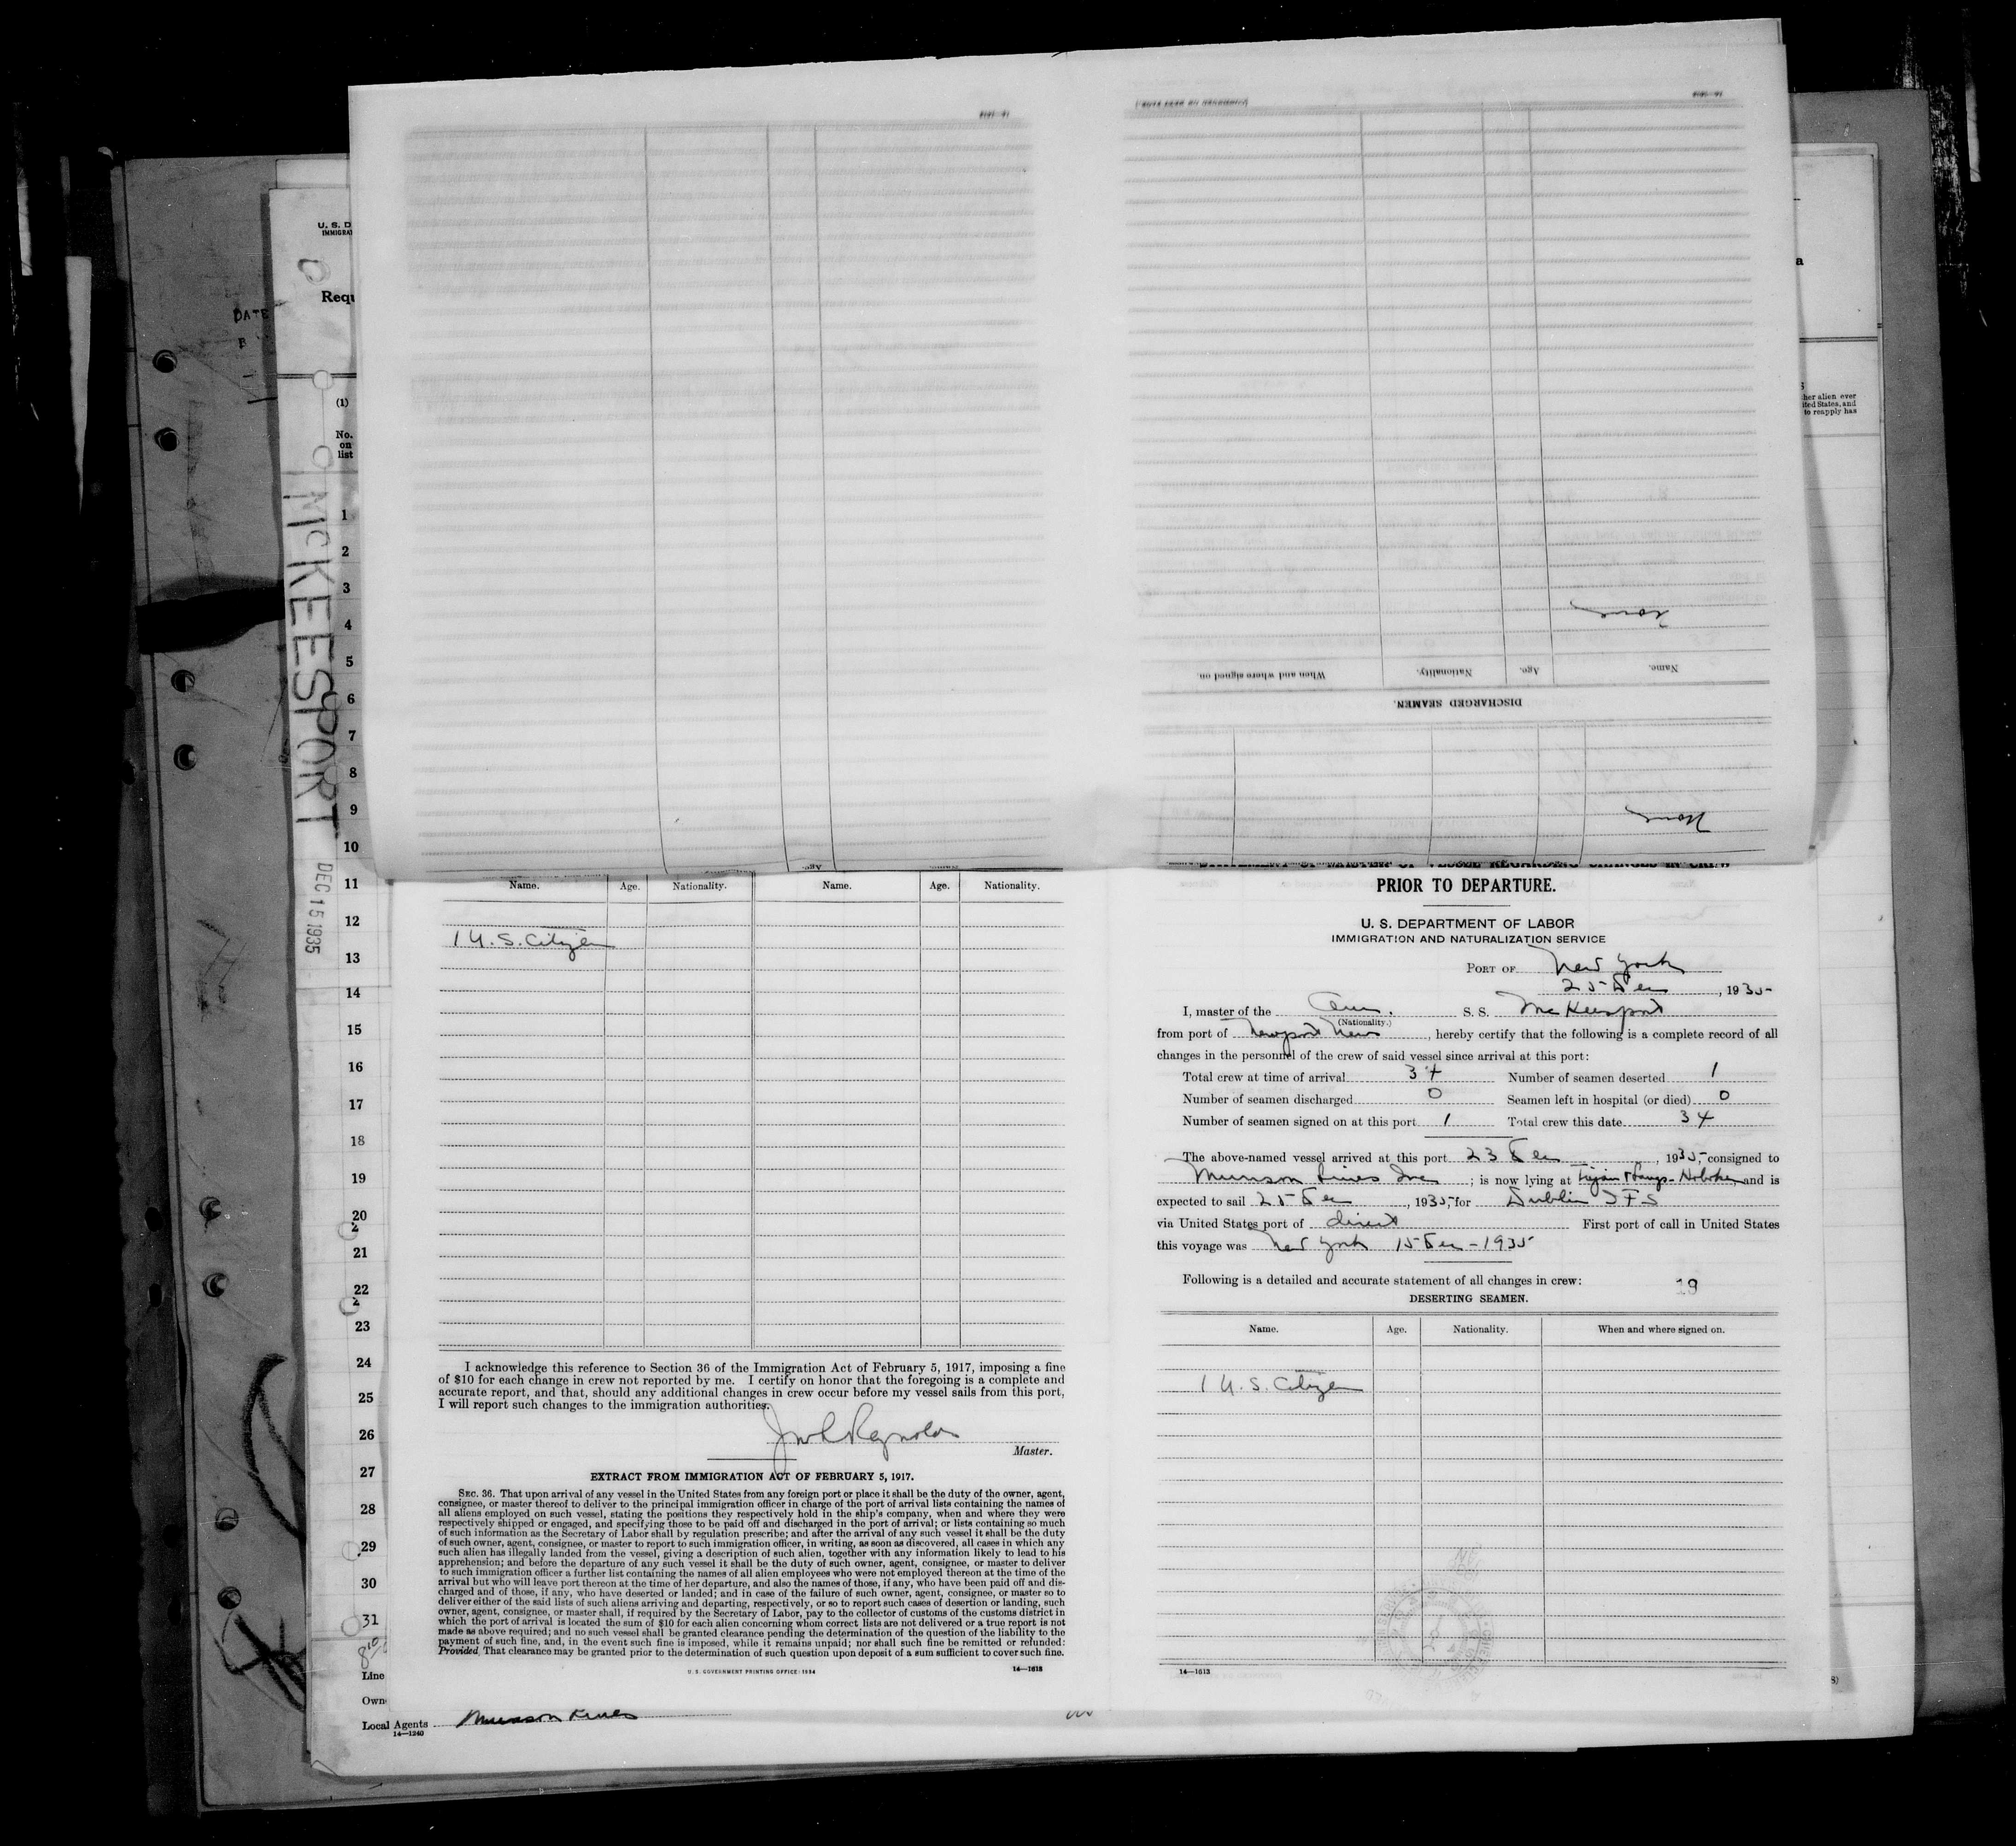 U. S. D
IMMIGRA
Requ
DATE
(1)
No.
on
list
a
her alien ever
ited States, and
to reapply has
MCKEESPORT
DEC 15 1935
1
2
3
4
5
6
7
8
9
10
11
12
13
14
15
16
17
18
19
20
21
22
23
24
25
26
27
28
29
30
31
Line
Own
Local Agents Munson Lines
14—1240
None
Name. Age. Nationality. When and where signed on.
DISCHARGED SEAMEN.
None
Name. Age. Nationality. Name. Age. Nationality.
1 U. S. Citizen
I acknowledge this reference to Section 36 of the Immigration Act of February 5, 1917, imposing a fine
of $10 for each change in crew not reported by me. I certify on honor that the foregoing is a complete and
accurate report, and that, should any additional changes in crew occur before my vessel sails from this port,
I will report such changes to the immigration authorities.
Reynolds
Master.
EXTRACT FROM IMMIGRATION ACT OF FEBRUARY 5, 1917.
SEC. 36. That upon arrival of any vessel in the United States from any foreign port or place it shall be the duty of the owner, agent,
consignee, or master thereof to deliver to the principal immigration officer in charge of the port of arrival lists containing the names of
all aliens employed on such vessel, stating the positions they respectively hold in the ship's company, when and where they were
respectively shipped or engaged, and specifying those to be paid off and discharged in the port of arrival; or lists containing so much
of such information as the Secretary of Labor shall by regulation prescribe; and after the arrival of any such vessel it shall be the duty
of such owner, agent, consignee, or master to report to such immigration officer, in writing, as soon as discovered, all cases in which any
such alien has illegally landed from the vessel, giving a description of such alien, together with any information likely to lead to his
apprehension; and before the departure of any such vessel it shall be the duty of such owner, agent, consignee, or master to deliver
to such immigration officer a further list containing the names of all alien employees who were not employed thereon at the time of the
arrival but who will leave port thereon at the time of her departure, and also the names of those, if any, who have been paid off and dis-
charged and of those, if any, who have deserted or landed; and in case of the failure of such owner, agent, consignee, or master so to
deliver either of the said lists of such aliens arriving and departing, respectively, or so to report such cases of desertion or landing, such
owner, agent, consignee, or master shall, if required by the Secretary of Labor, pay to the collector of customs of the customs district in
which the port of arrival is located the sum of $10 for each alien concerning whom correct lists are not delivered or a true report is not
made as above required; and no such vessel shall be granted clearance pending the determination of the question of the liability to the
payment of such fine, and, in the event such fine is imposed, while it remains unpaid; nor shall such fine be remitted or refunded:
Provided, That clearance may be granted prior to the determination of such question upon deposit of a sum sufficient to cover such fine.
U. S. GOVERNMENT PRINTING OFFICE: 1934 14—1613
PRIOR TO DEPARTURE.
U. S. DEPARTMENT OF LABOR
IMMIGRATION AND NATURALIZATION SERVICE
PORT OF New York
25 Dec, 1935
I, master of the Am. S. S. McKeesport
(Nationality.)
from port of Newport News, hereby certify that the following is a complete record of all
changes in the personnel of the crew of said vessel since arrival at this port:
Total crew at time of arrival 34 Number of seamen deserted 1
Number of seamen discharged 0 Seamen left in hospital (or died) 0
Number of seamen signed on at this port 1 Total crew this date 34
The above-named vessel arrived at this port 23 Dec, 1935, consigned to
Munson Lines Inc; is now lying at Hoboken, and is
expected to sail 25 Dec, 1935, for Dublin IFS
via United States port of direct First port of call in United States
this voyage was New York 15 Dec - 1935
Following is a detailed and accurate statement of all changes in crew: 19
DESERTING SEAMEN.
Name. Age. Nationality. When and where signed on.
1 U. S. Citizen
14—1613